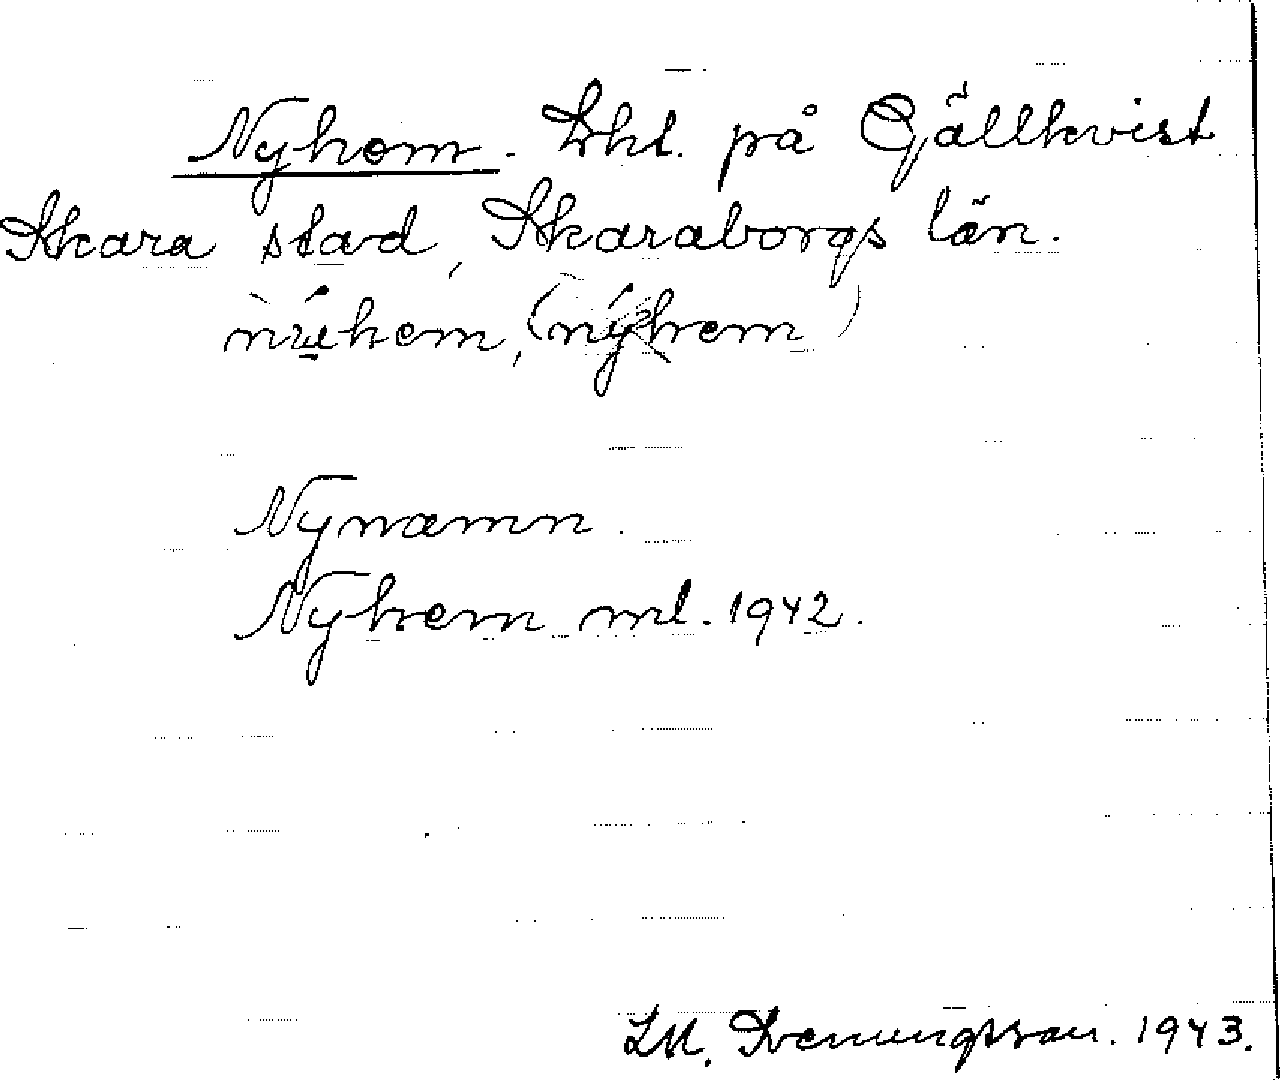 Nyhem. Lht. på Gällkvist
Skara stad, Skaraborgs län.
hem, (nýhem)
Nynamn.
Nyhem ml. 1942.
Svenungsson. 1943.